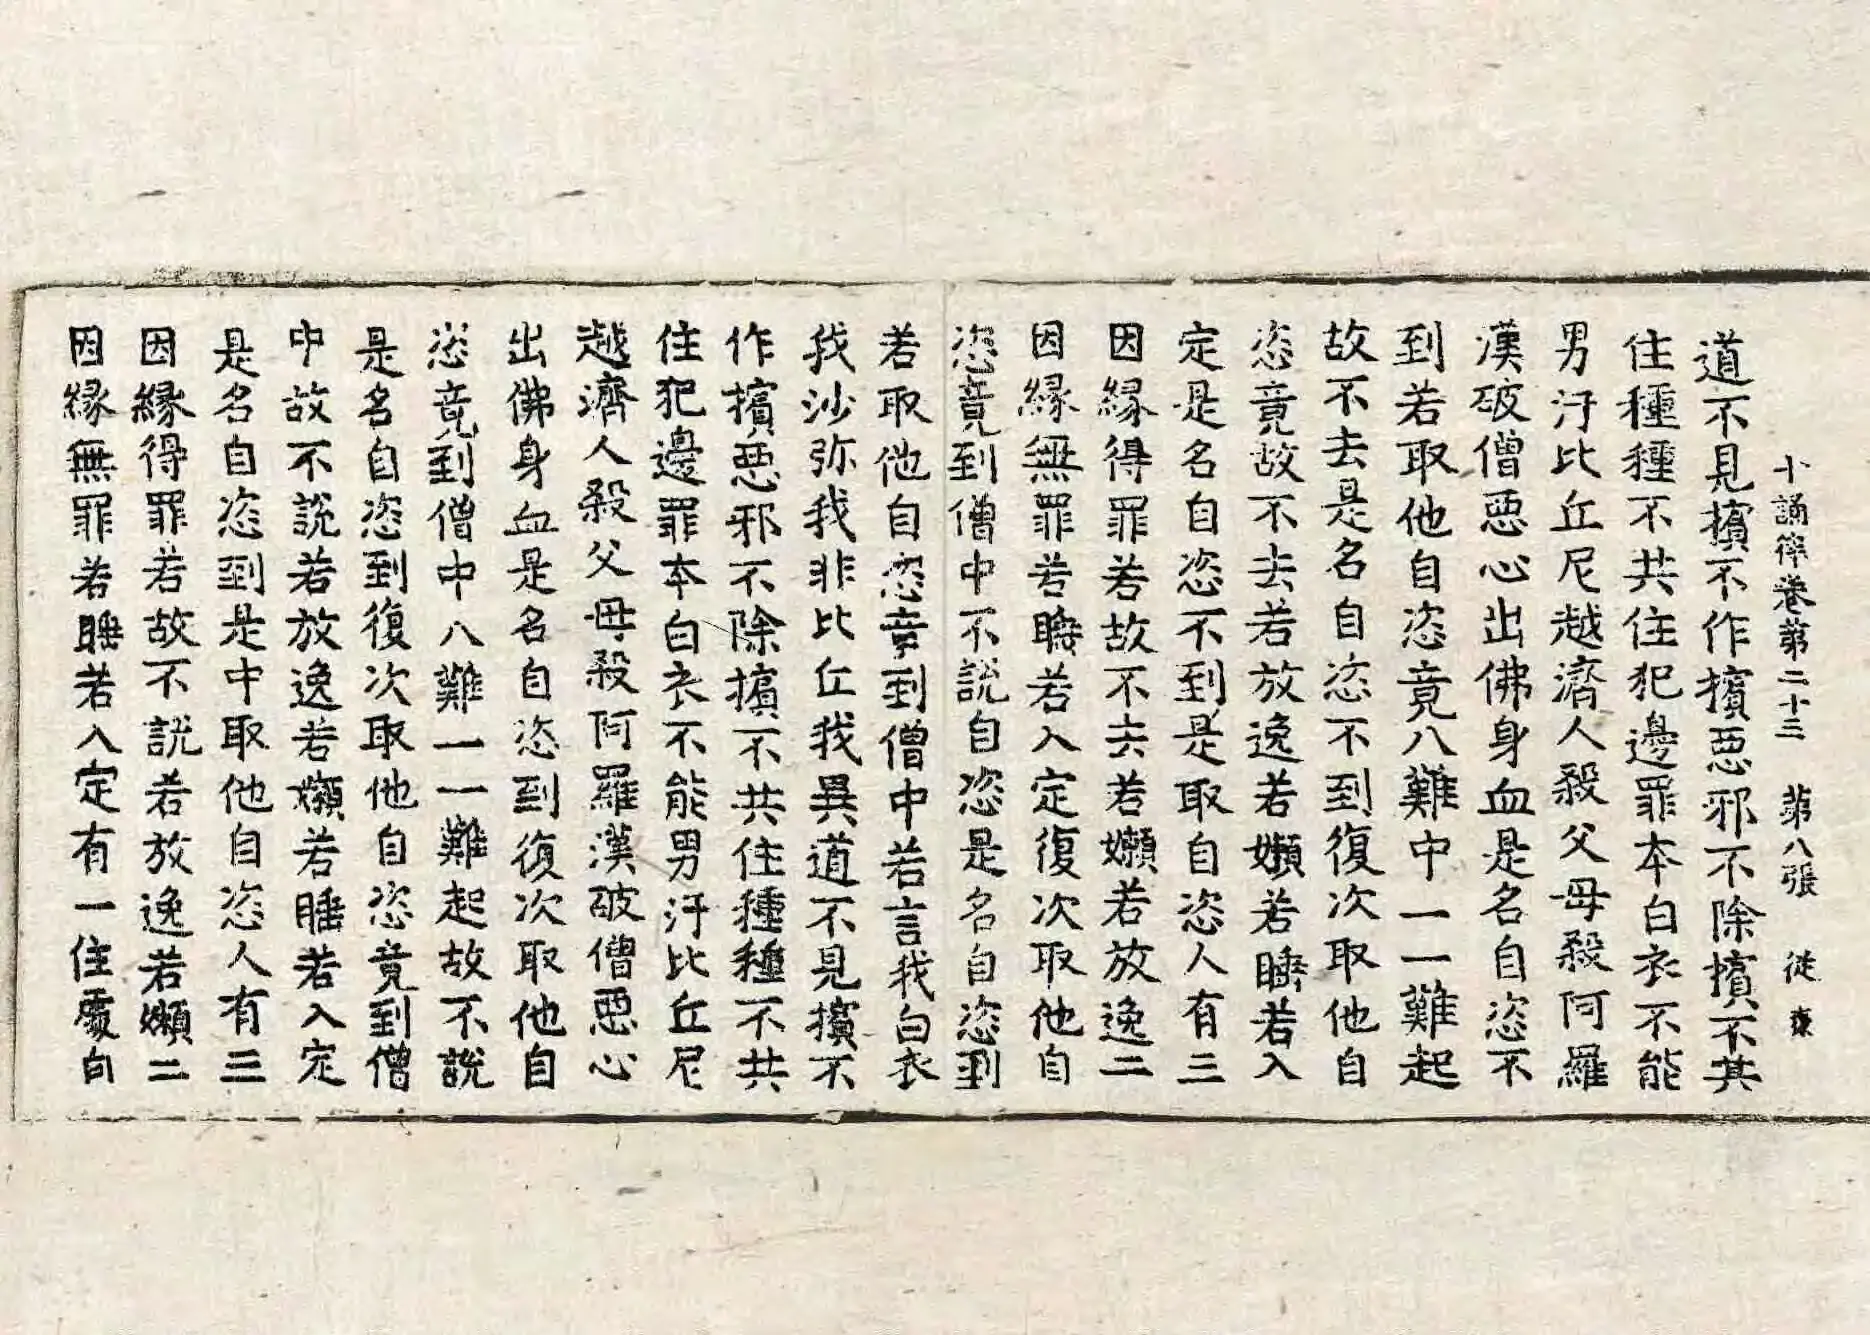 十誦律卷苐二十三 苐八張 従
道不見擯不作擯惡邪不除擯不共
住種種不共住犯邊罪本白衣不能
男汙比丘尼越濟人殺父母殺阿羅
漢破僧惡心出佛身血是名自恣不
到若取他自恣竟八難中一一難起
故不去是名自恣不到復次取他自
恣竟故不去若放逸若嬾若睡若入
定是名自恣不到是取自恣人有三
因緣得罪若故不去若嬾若放逸二
因緣無罪若睡若入定復次取他自
恣竟到僧中不說自恣是名自恣到
若取他自恣竟到僧中若言我白衣
我沙弥我非比丘我異道不見擯不
作擯惡邪不除擯不共住種種不共
住犯邊罪本白衣不能男汙比丘尼
越濟人殺父母殺阿羅漢破僧惡心
出佛身血是名自恣到復次取他自
恣竟到僧中八難一一難起故不說
是名自恣到復次取他自恣竟到僧
中故不說若放逸若嬾若睡若入定
是名自恣到是中取他自恣人有三
因緣得罪若故不說若放逸若嬾二
因緣無罪若睡若入定有一住處自